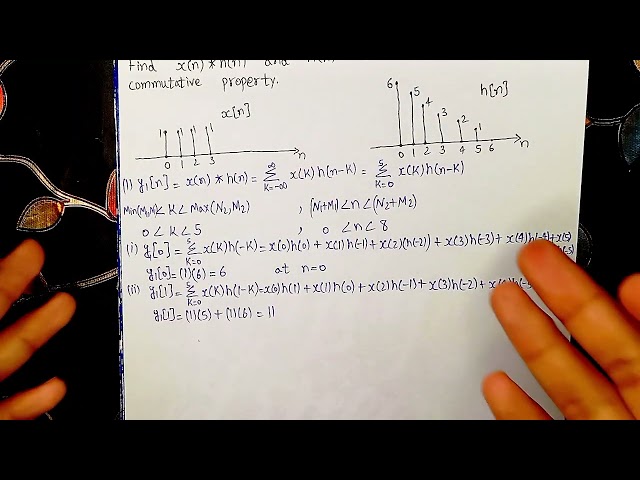 Find x(n) * h(n) and
commutative property.
x[n]
1 1 1 1
0 1 2 3 n
h[n]
6 5 4 3 2 1
0 1 2 3 4 5 6 n
(1) y₁[n] = x(n) * h(n) = ∞∑K=-∞ x(K) h(n-K) = 5∑K=0 x(K) h(n-K)
Min(M₁,N₁) < K < Max(N₂,M₂) , (N₁+M₁) < n < (N₂+M2)
0 < K < 5 , 0 < n < 8
(i) y₁[0] = 5∑K=0 x(K)h(-K) = x(0)h(0) + x(1)h(-1) + x(2)(h(-2)) + x(3)h(-3) + x(4)h(-4) + x(5)
y₁[0] = (1)(6) = 6 at n=0
(ii) y₁[1] = 5∑K=0 x(K)h(1-K) = x(0)h(1) + x(1)h(0) + x(2)h(-1) + x(3)h(-2) +
y₁[1] = (1)(5) + (1)(6) = 11